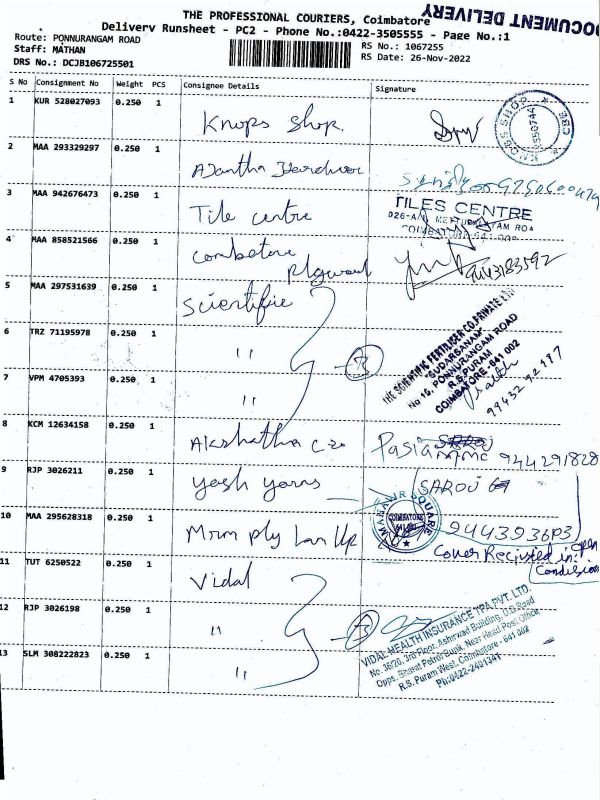 THE PROFESSIONAL COURIERS, Coimbatore
DOCUMENT DELIVERY
Delivery Runsheet - PC2 - Phone No.:0422-3505555 - Page No.:1
Route: PONNURANGAM ROAD
RS No.: 1067255
Staff: MATHAN
RS Date: 26-Nov-2022
DRS No.: DCJB106725501
S No Consignment No Weight PCS Consignee Details Signature
1 KUR 528027093 0.250 1 Knops Shop.
2 MAA 293329297 0.250 1 Ajantha Hardware
3 MAA 942676473 0.250 1 Tile centre
TILES CENTRE
COIMBATORE-641 002
4 MAA 858521566 0.250 1 Coimbatore Plywood
9443183592
5 MAA 297531639 0.250 1 Scientific
6 TRZ 71195978 0.250 1 "
3
7 VPM 4705393 0.250 1 "
THE SCIENTIFIC FERTILISER CO.PRIVATE LTD
"SUDARSANAM"
No 15, PONNURANGAM ROAD
R.S.PURAM
COIMBATORE - 641 002
99432 92117
8 KCM 12634158 0.250 1 Akshatha
944291828
9 RJP 3026211 0.250 1 Yash Yarns
SAROJ
10 MAA 295628318 0.250 1 Mrm Ply
MAHAVIR SQUARE
COIMBATORE
641 002
Cover Recivied in
open
Condision
11 TUT 6250522 0.250 1 Vidal
12 RJP 3026198 0.250 1 "
3
13 SLM 308222823 0.250 1 "
VIDAL HEALTH INSURANCE TPA PVT. LTD.
No. 36/20, 3rd Floor, Ashirwad Building, D.B.Road
Opps. Bharat Petrol Bunk, Near Head Post Office,
R.S. Puram West, Coimbatore - 641 002
Ph:0422-2401341